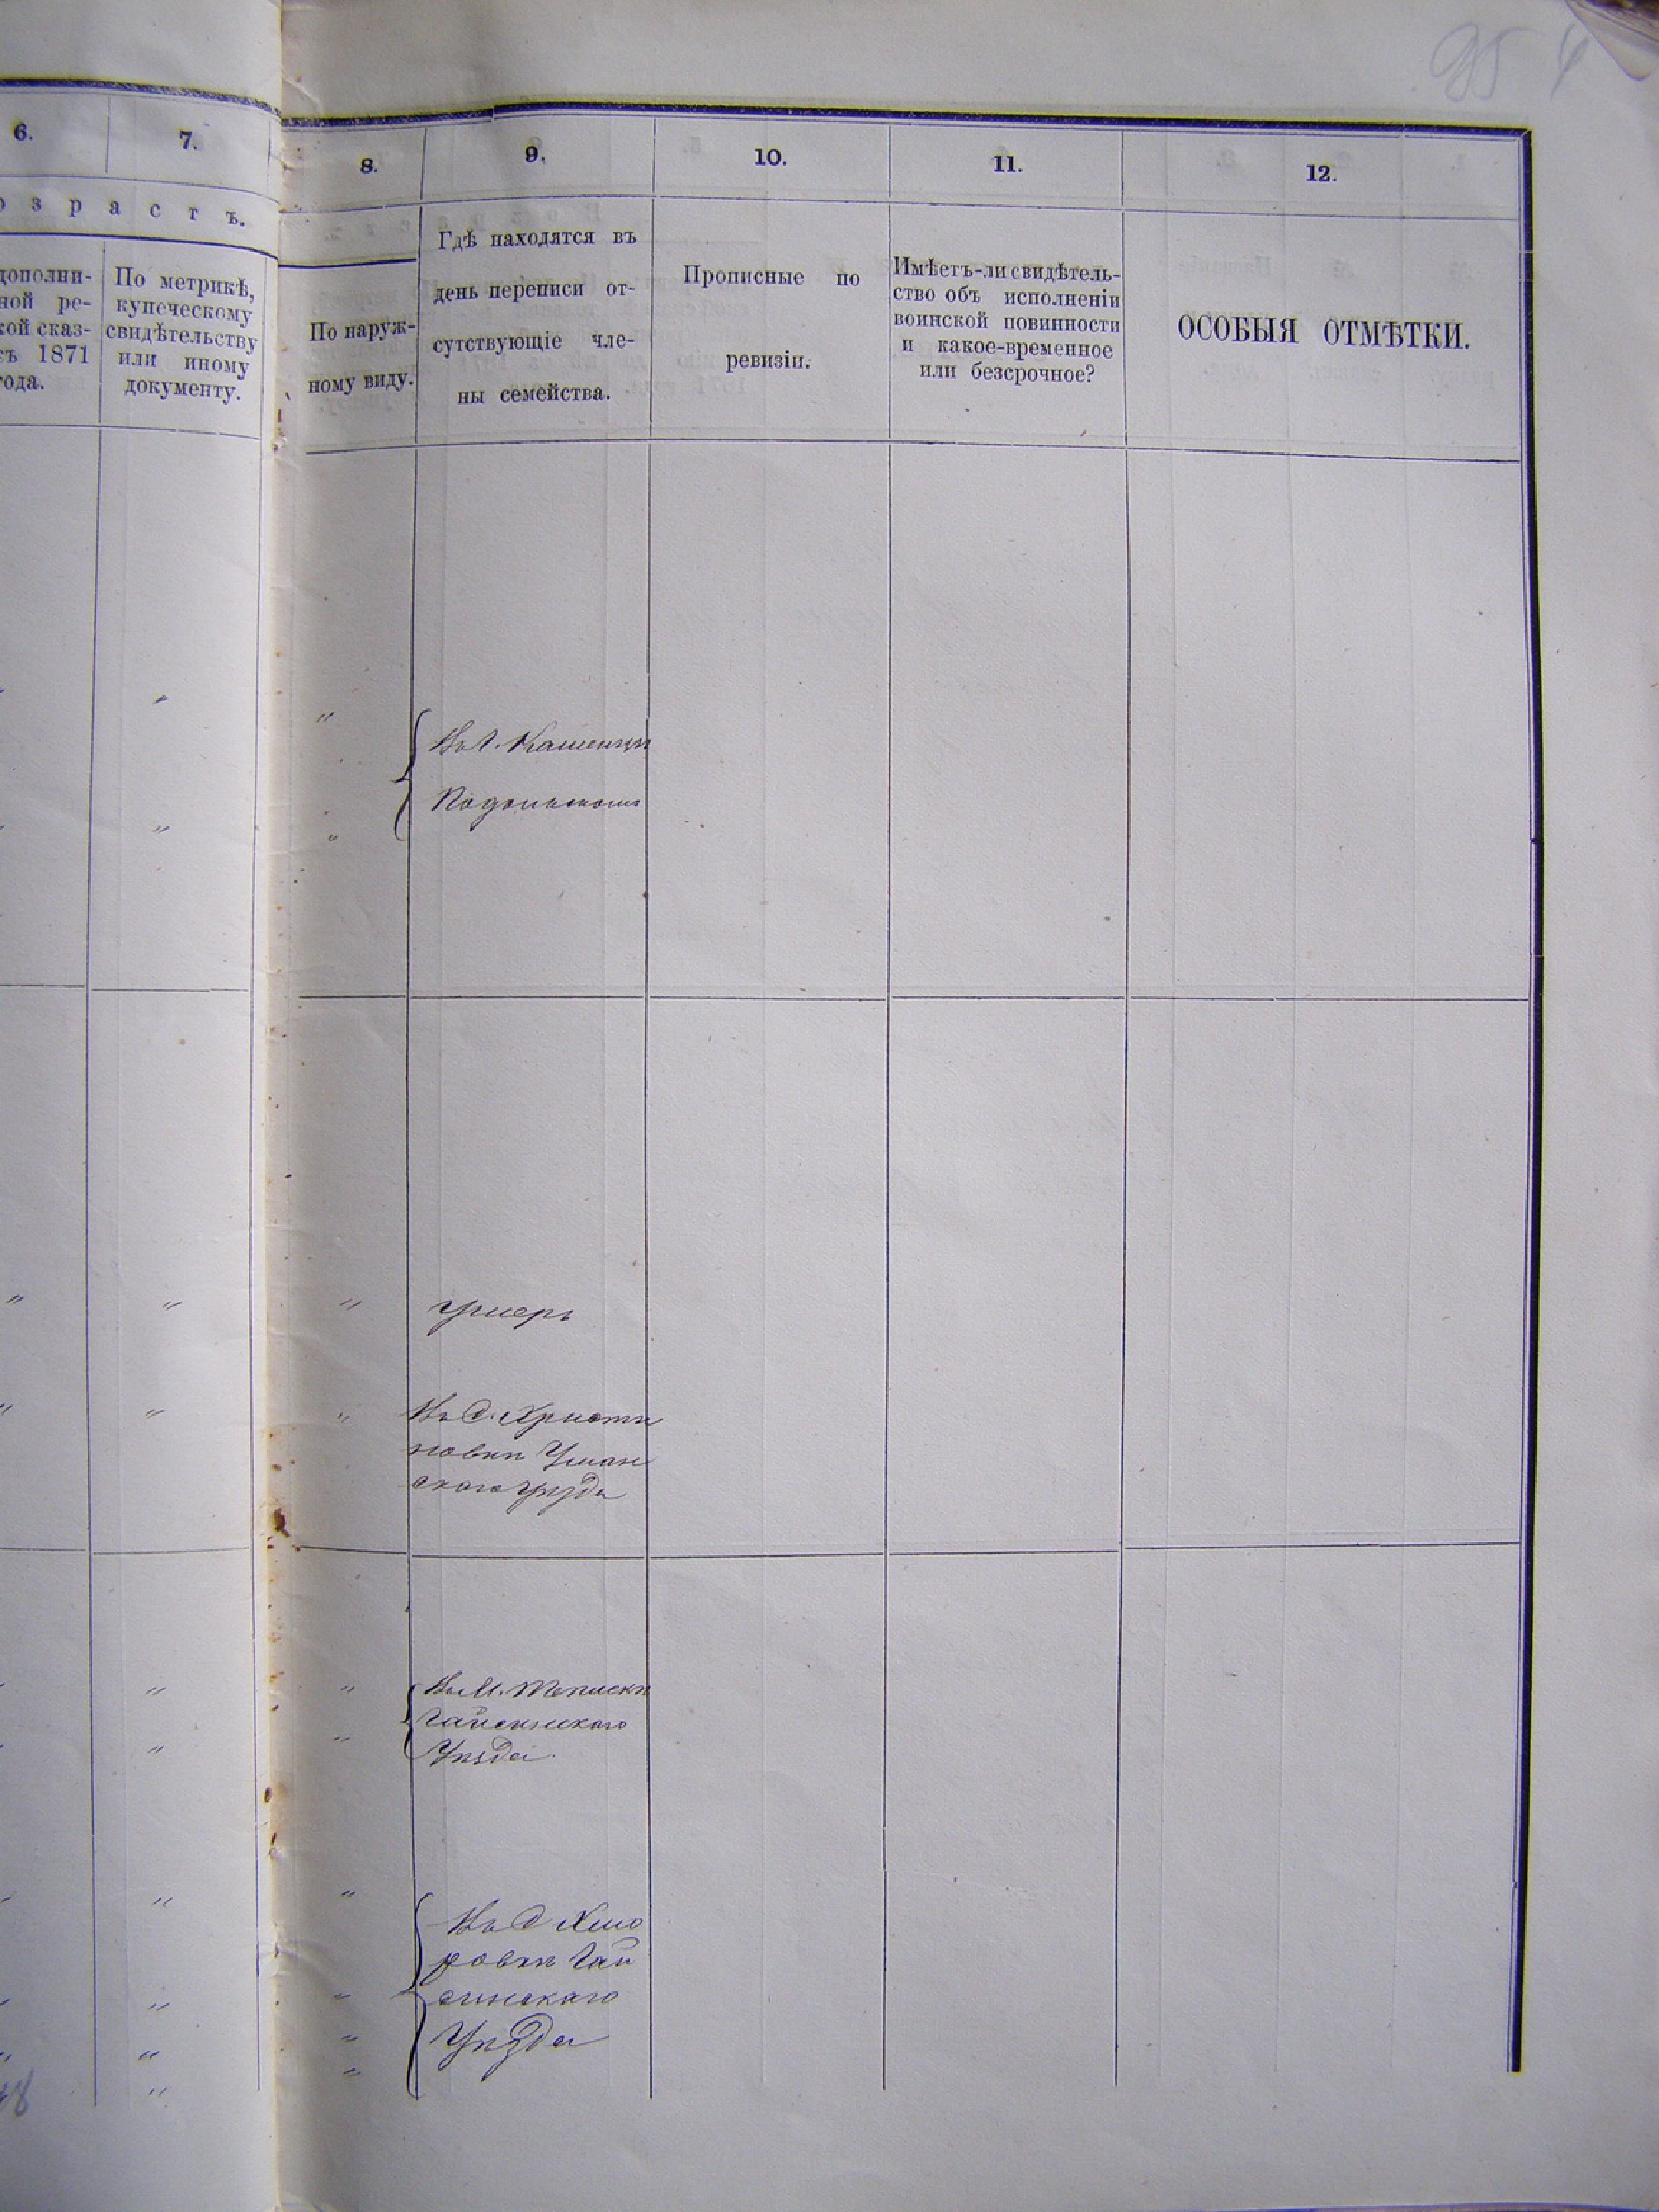 95 4
6.
7.
8.
9.
10.
11.
12.
озрастъ.
дополни-
ной ре-
кой сказ-
съ 1871
года.
По метрикѣ,
купеческому
свидѣтельству
или иному
документу.
По наруж-
ному виду.
Гдѣ находятся въ
день переписи от-
сутствующіе чле-
ны семейства.
Прописные по
ревизіи.
Имѣетъ-ли свидѣтель-
ство объ исполненіи
воинской повинности
и какое-временное
или безсрочное?
ОСОБЫЯ ОТМѢТКИ.
" "
Въ Г. Каменцѣ
Подольскомъ
" "
" " " умеръ
" " " Въ С. Христи
новки Уман
скаго уѣзда
" " Въ М. Теплики
Гайсинскаго
" " Уѣзда
" "
Въ С
ровки Гай
" " синскаго
" " Уѣзда
" "
48 "